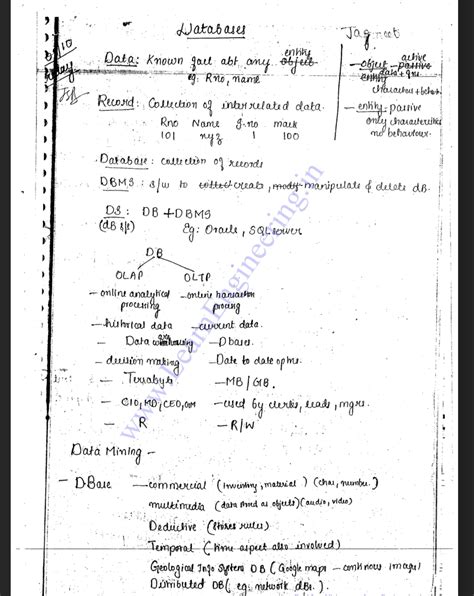 Databases
Jagneet
Data: Known fact abt. any object entity
eg: Rno, name
- object - active
data + fns
characters + behav.
- entity - passive
only characteristics
no behaviour.
Record: Collection of interrelated data.
Rno Name S.no mark
101 xyz 1 100
Database: collection of records
DBMS: s/w to create, manipulate & delete dB.
DS: DB + DBMS
(dB s/s) Eg: Oracle, SQL server
DB
OLAP OLTP
- online analytical processing - online transaction procing
- historical data - current data.
- Data warehousing - Dbases.
- decision making - Date to date opns.
- Terrabyte - MB/GB.
- CIO, MD, CEO, GM - used by clerks, leads, mgrs.
- R - R/W
Data Mining -
- DBase - commercial (Inventory, material) (char, number.)
multimedia (data stored as objects) (audio, video)
Deductive (stores rules)
Temporal (time aspect also involved)
Geological Info System DB (Google maps - continous images)
Distributed DB (eg. network dBs.)
www.LearnEngineering.in